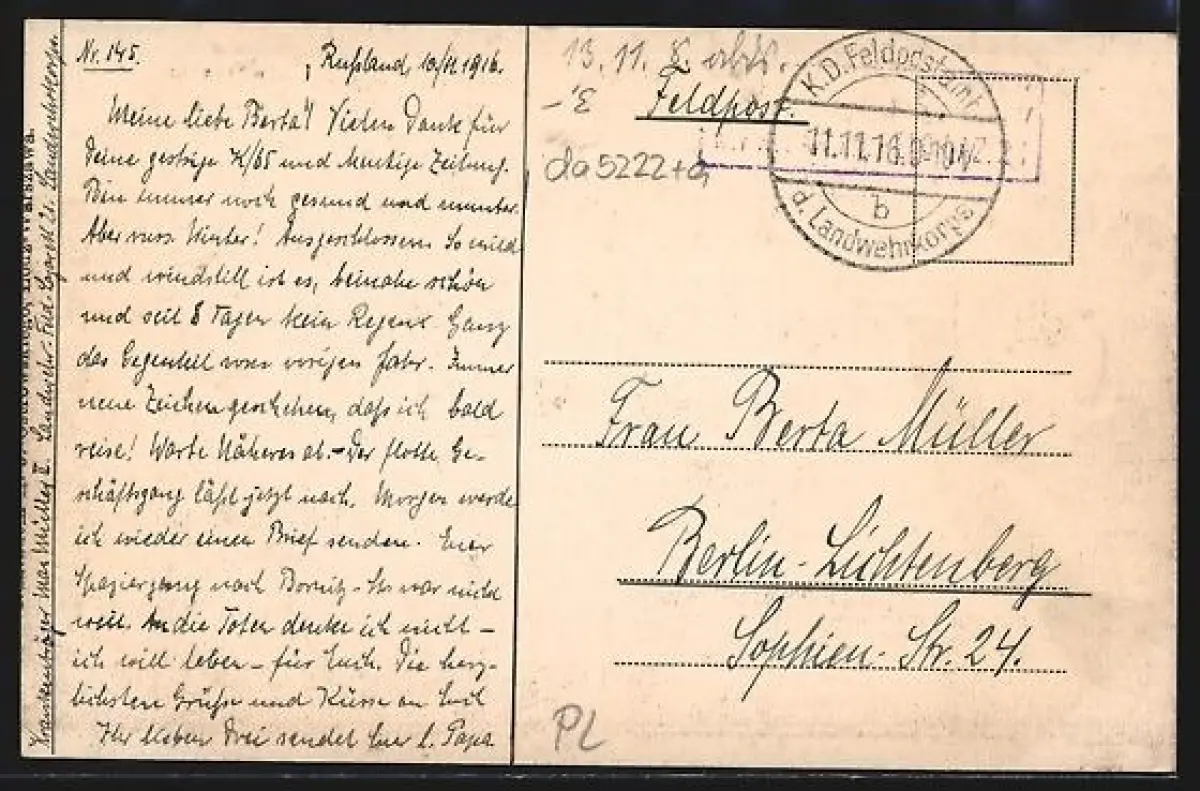 Nr. 145.
Rußland, 10/11 1916.
Meine liebe Berta! Vielen Dank für
Deine gestrige K/65 und heutige Zeitung.
Bin immer noch gesund und munter.
Aber Winter! Ausgeschlossen. So mild
und windstill ist es, beinahe schön
und seit 8 Tagen kein Regen. Ganz
das Gegenteil vom vorigen Jahr. Immer
neue Zeichen geschehen, daß ich bald
reise! Warte Näheres ab. - Der flotte Ge-
schäftsgang läßt jetzt nach. Morgen werde
ich wieder einen Brief senden. Euer
Spaziergang nach - Es war nicht
weit. An die Toten denke ich nicht -
ich will leben - für Euch. Die herz-
lichsten Grüße und Küsse an Euch
Ihr lieben Drei sendet Euer l. Papa
Krankenträger Max Müller II. Landwehr-Feld-Lazarett 21. Landwehrkorps.
Warszawa.
13. 11. erh.
Feldpost.
da5222+a
K.D. Feldpostamt
11.11.16.
b
d. Landwehrkorps
Frau Berta Müller
Berlin-Lichtenberg
Sophien-Str. 24.
PL